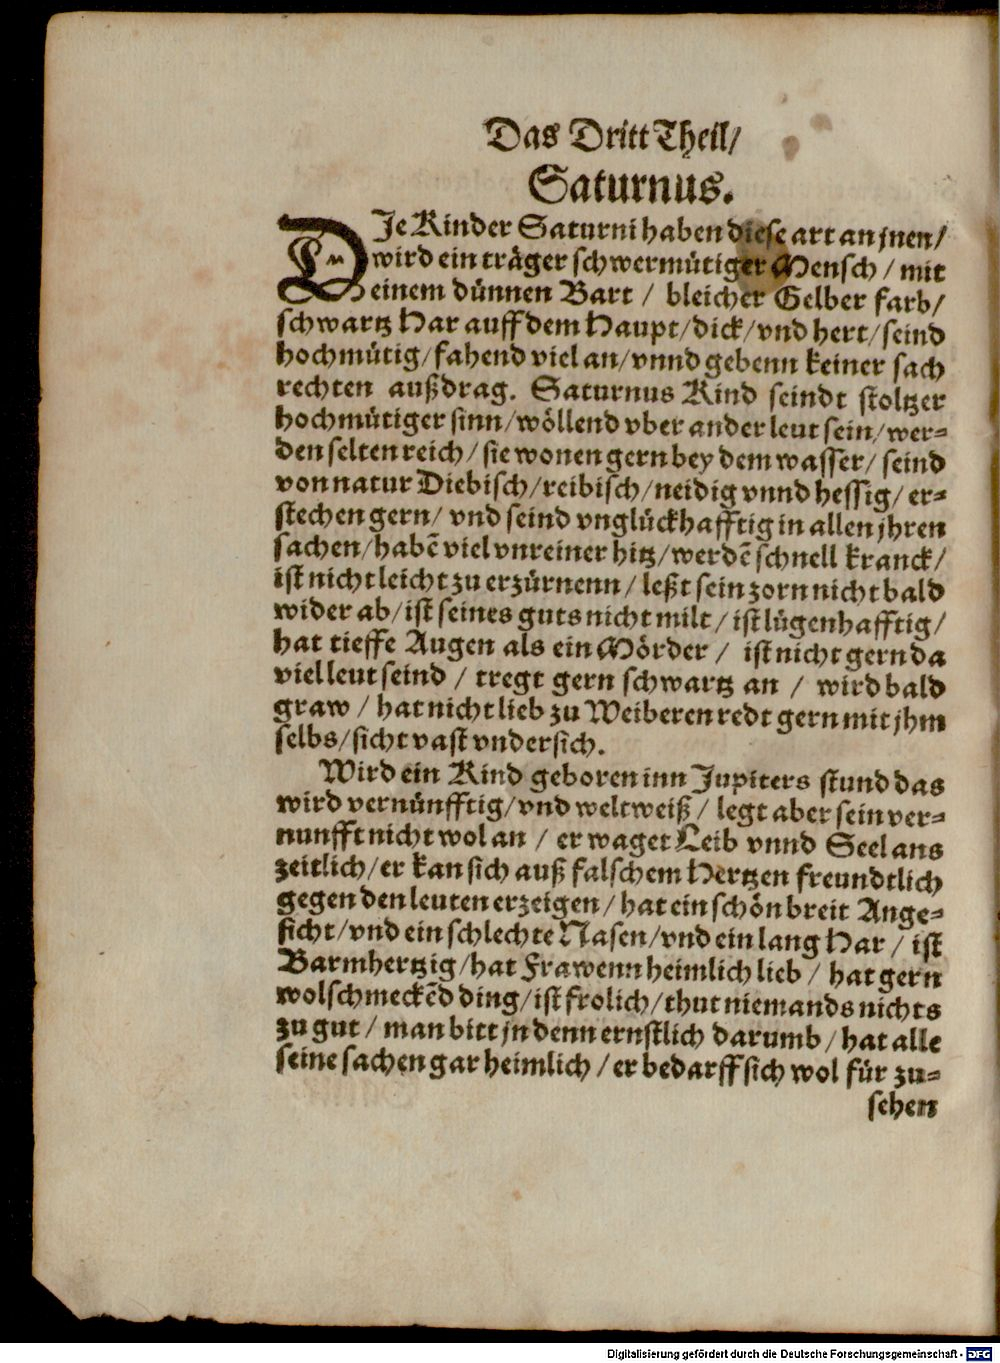 Das Dritt Theil/
Saturnus.
DIe Kinder Saturni haben diese art an jnen/
wird ein träger schwermütiger Mensch / mit
einem dünnen Bart / bleicher Gelber farb/
schwartz Har auff dem Haupt/dick/vnd hert/seind
hochmütig/fahend viel an/vnnd gebenn keiner sach
rechten außdrag. Saturnus Kind seindt stoltzer
hochmütiger sinn/wöllend vber ander leut sein/wer-
den selten reich/sie wonen gern bey dem wasser/seind
von natur Diebisch/reibisch/neidig vnnd hessig/er-
stechen gern/ vnd seind vnglückhafftig in allen jhren
sachen/habē viel vnreiner hitz/werdē schnell kranck/
ist nicht leicht zu erzürnenn/leßt sein zorn nicht bald
wider ab/ist seines guts nicht milt/ist lügenhafftig/
hat tieffe Augen als ein Mörder / ist nicht gern da
viel leut seind / tregt gern schwartz an / wird bald
graw / hat nicht lieb zu Weiberen redt gern mit jhm
selbs/sicht vast vndersich.
Wird ein Kind geboren inn Jupiters stund das
wird vernünfftig/vnd weltweiß/ legt aber sein ver-
nunfft nicht wol an / er waget Leib vnnd Seel ans
zeitlich/er kan sich auß falschem Hertzen freundtlich
gegen den leuten erzeigen/hat ein schön breit Ange-
sicht/vnd ein schlechte Nasen/vnd ein lang Har / ist
Barmhertzig/hat Frawenn heimlich lieb / hat gern
wolschmeckēd ding/ist frolich/thut niemands nichts
zu gut / man bitt jn denn ernstlich darumb/hat alle
seine sachen gar heimlich / er bedarff sich wol für zu-
sehen
Digitalisierung gefördert durch die Deutsche Forschungsgemeinschaft - DFG